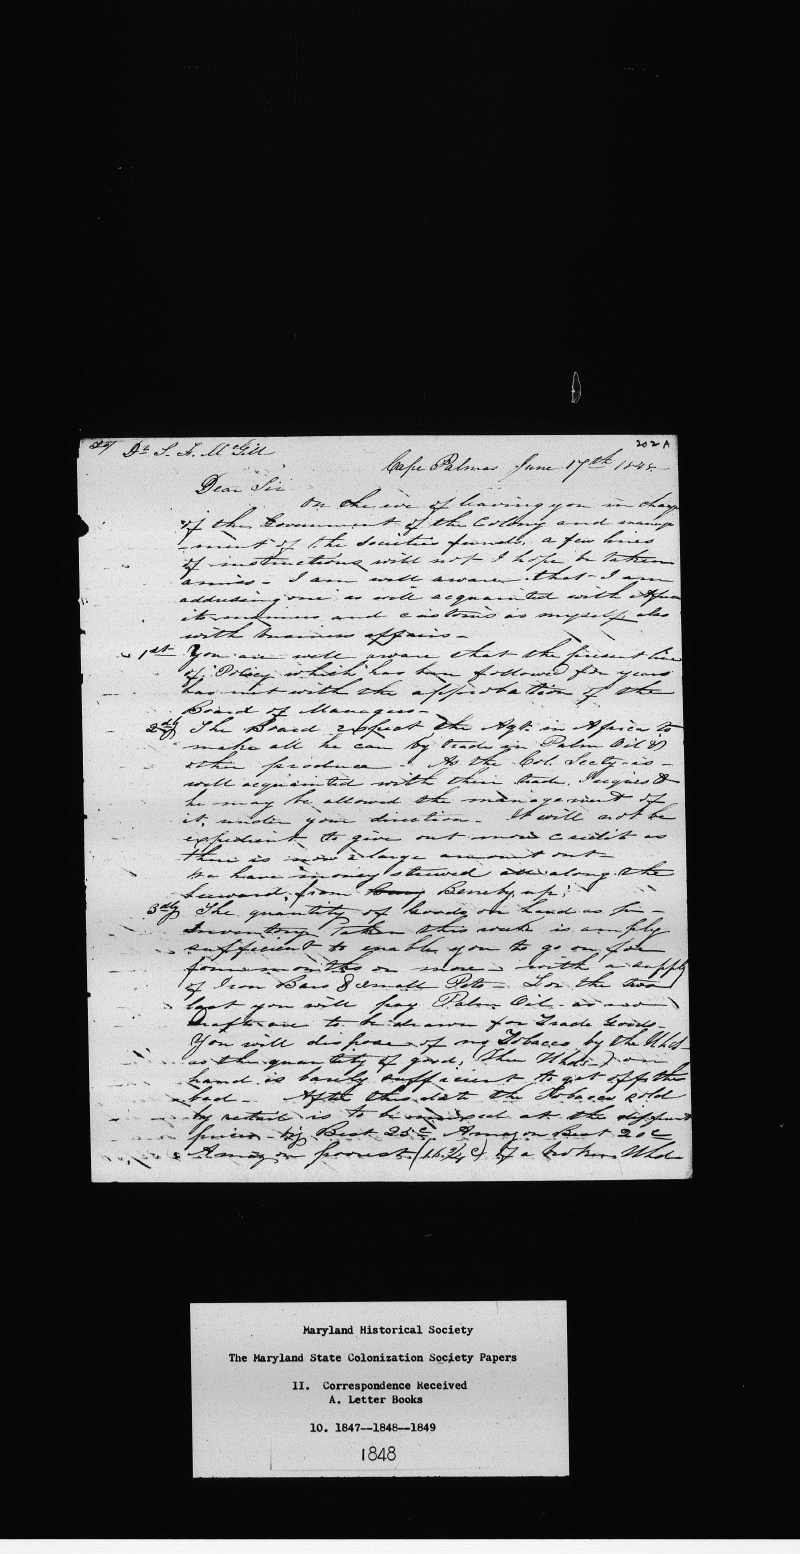 202 A
Dr S. F. McGill
Cape Palmas June 17th 1848.
Dear Sir
On the eve of leaving you in charge
of the Government of the Colony and manage
-ment of the Societies funds, a few lines
of instructions will not I hope be taken
amiss - I am well aware that I am
addressing one as well acquainted with Africa
its manners and customs as myself also
with business affairs -
1st You are well aware that the present line
of Policy which has been followed for years
has met with the approbation of the
Board of Managers -
2dly The Board expect the Agt. in Africa to
make all he can by trade in Palm Oil &
other produce - As the Col. Secty. is -
well acquainted with their trade, I suggest
he may be allowed the management of
it under your direction - It will not be
expedient to give out more credit as
there is now a large amount out -
We have money strewed along the
Leeward, from Bereby up;
3dly The quantity of Goods on hand as per -
Inventory taken this week is amply
sufficient to enable you to go on for
four months or more - with a supply
of Iron Bars & small Pots - For the two
last you will pay Palm Oil - as no
Drafts are to be drawn for Trade Goods -
You will dispose of no Tobacco by the Uhd
as the quantity of good, (the Uhds -) on
hand is barely sufficient to get off the
bad - After this date the Tobacco sold
by retail is to be at the different
prices - viz Best 25c, Amazon Best 20c
Amazon poorest (16 3/4 c) If a broken Uhd
Maryland Historical Society
The Maryland State Colonization Society Papers
II. Correspondence Received
A. Letter Books
10. 1847--1848--1849
1848